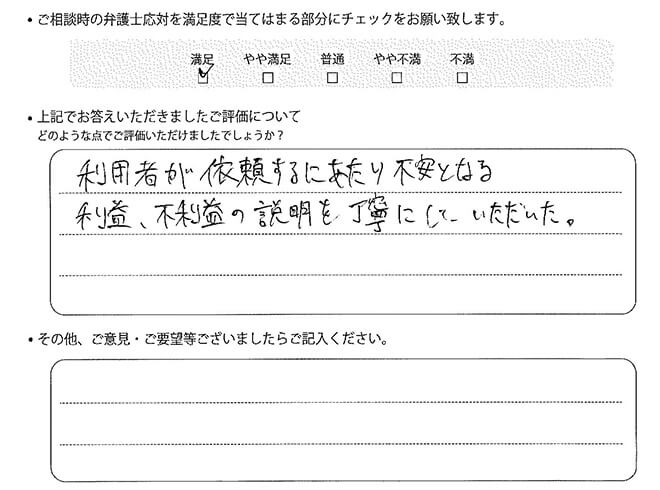 ・ご相談時の弁護士応対を満足度で当てはまる部分にチェックをお願い致します。
満足 やや満足 普通 やや不満 不満
・上記でお答えいただきましたご評価について
どのような点でご評価いただけましたでしょうか？
利用者が依頼するにあたり不安となる
利益、不利益の説明を丁寧にしていただいた。
・その他、ご意見・ご要望等ございましたらご記入ください。